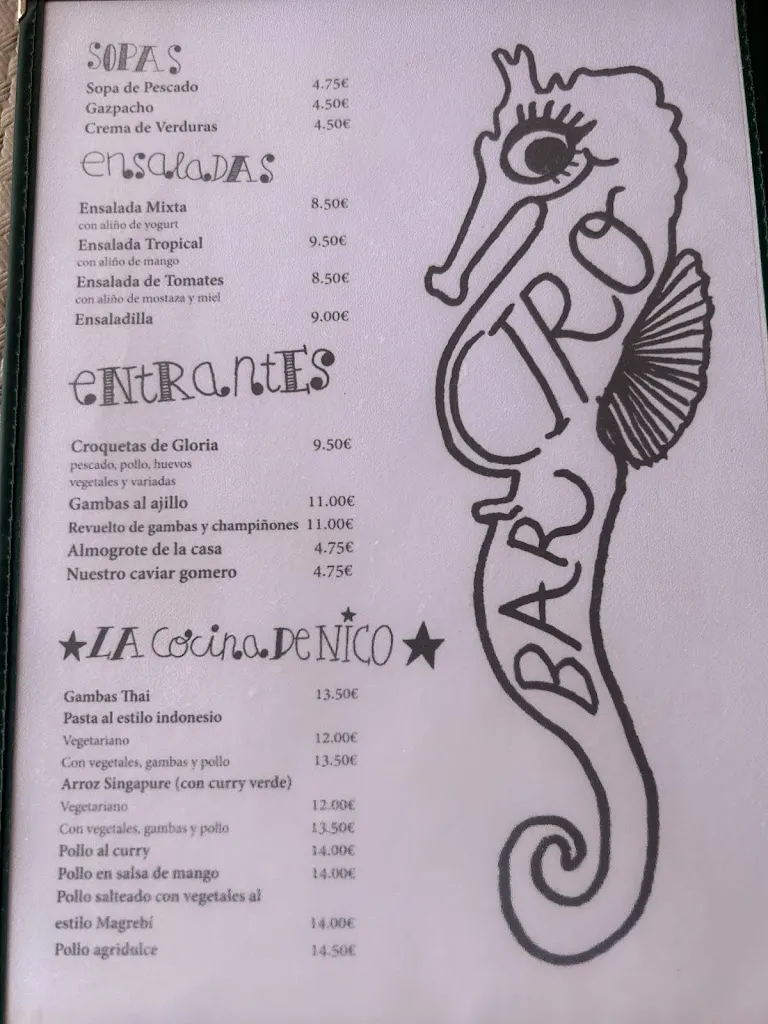 SOPAS
Sopa de Pescado 4.75€
Gazpacho 4.50€
Crema de Verduras 4.50€
ensalaDAS
Ensalada Mixta 8.50€
con aliño de yogurt
Ensalada Tropical 9.50€
con aliño de mango
Ensalada de Tomates 8.50€
con aliño de mostaza y miel
Ensaladilla 9.00€
eNtRantES
Croquetas de Gloria 9.50€
pescado, pollo, huevos
vegetales y variadas
Gambas al ajillo 11.00€
Revuelto de gambas y champiñones 11.00€
Almogrote de la casa 4.75€
Nuestro caviar gomero 4.75€
LA cocina De NICO
Gambas Thai 13.50€
Pasta al estilo indonesio
Vegetariano 12.00€
Con vegetales, gambas y pollo 13.50€
Arroz Singapure (con curry verde)
Vegetariano 12.00€
Con vegetales, gambas y pollo 13.50€
Pollo al curry 14.00€
Pollo en salsa de mango 14.00€
Pollo salteado con vegetales al
estilo Magrebí 14.00€
Pollo agridulce 14.50€
BAR CIRO